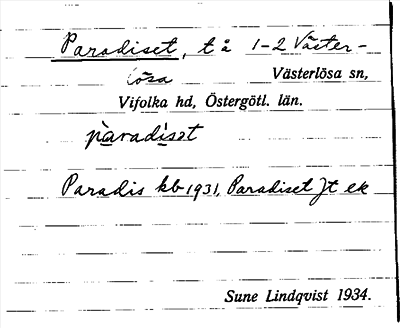 Paradiset, t å 1-2 Väster-
lösa Västerlösa sn,
Vifolka hd, Östergötl. län.
pàradìset
Paradis kb 1931, Paradiset Jt ek
Sune Lindqvist 1934.